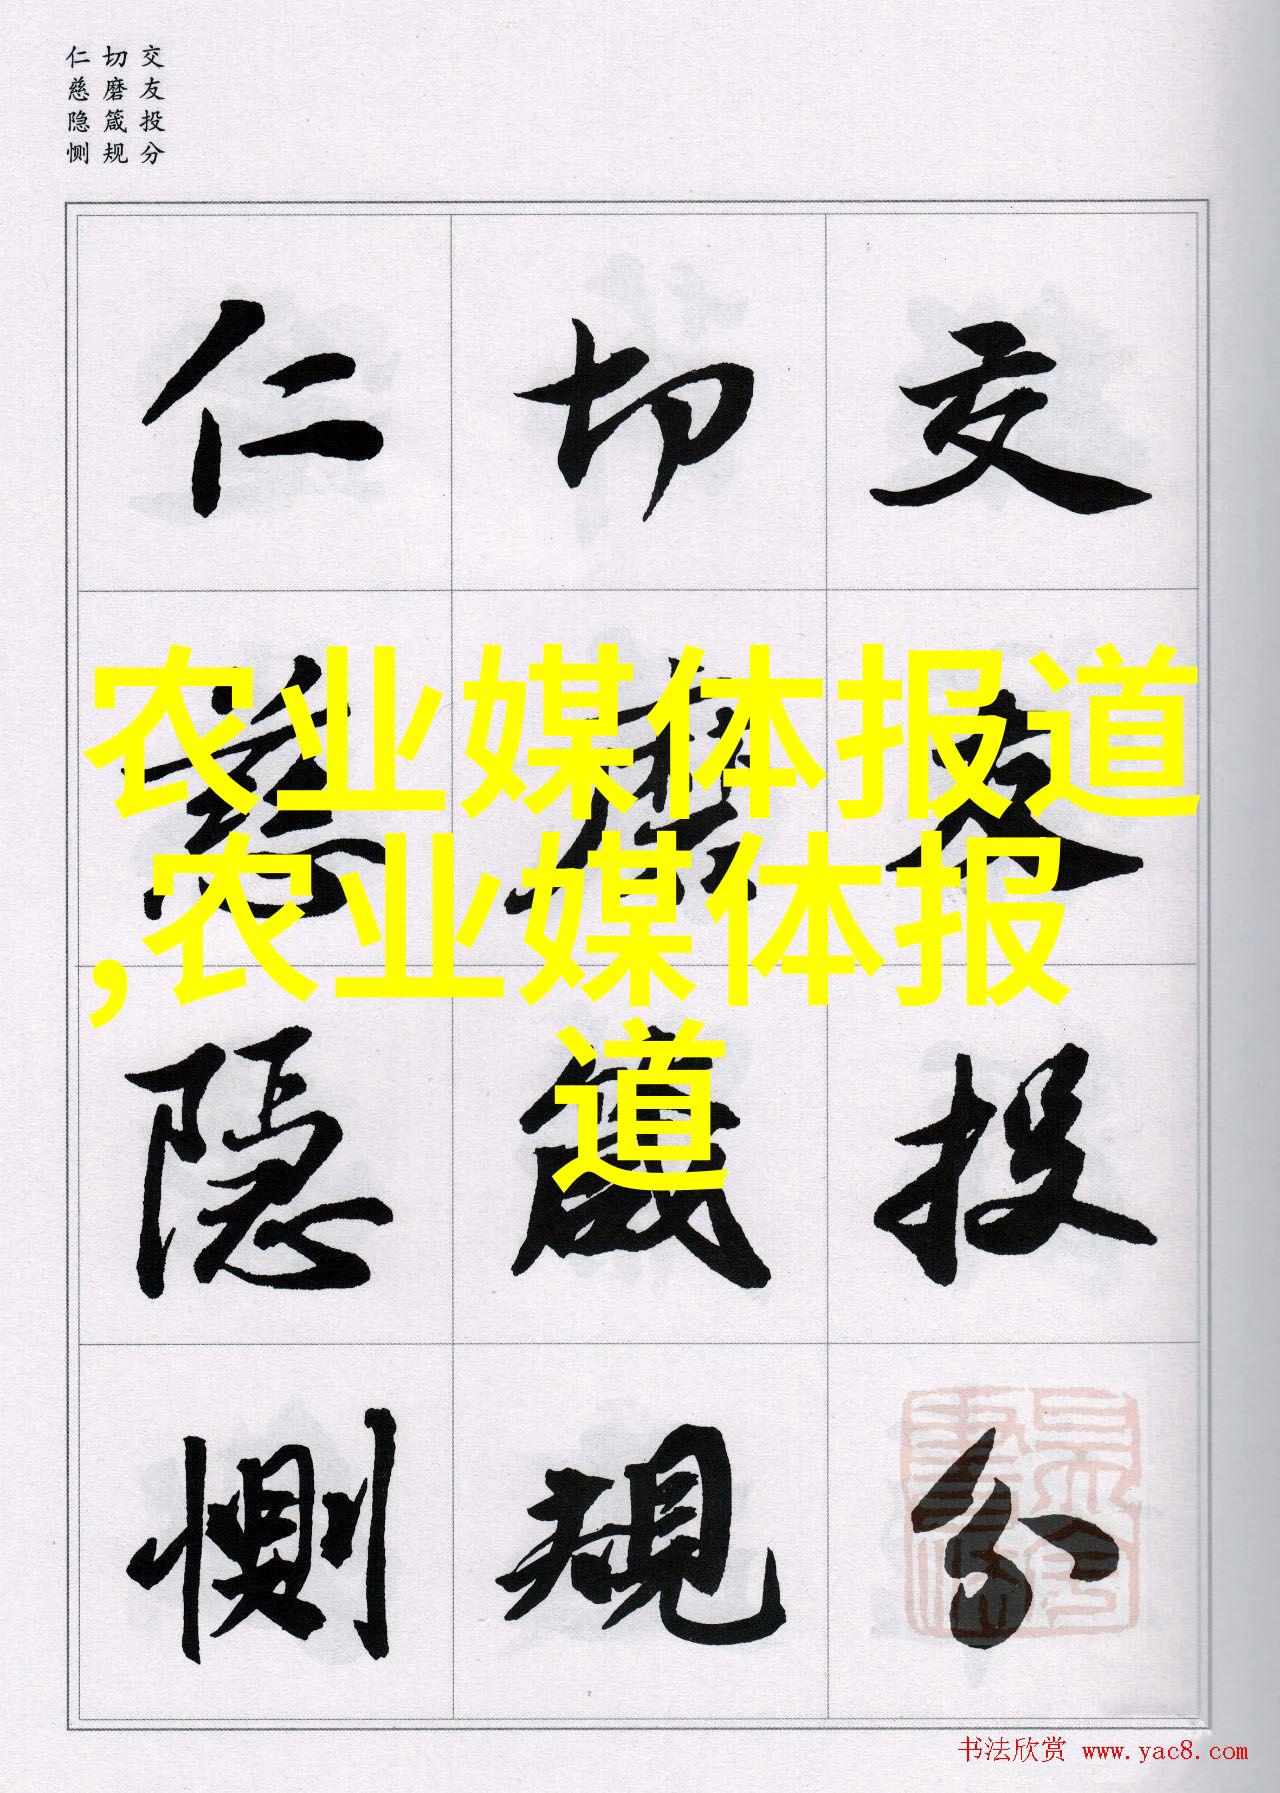 交友投分
切磨箴规
仁慈隐恻
交友投分
切磨箴規
仁慈隱惻
农业媒体报道
,农业媒体报
道
书法欣赏 www.yac8.com